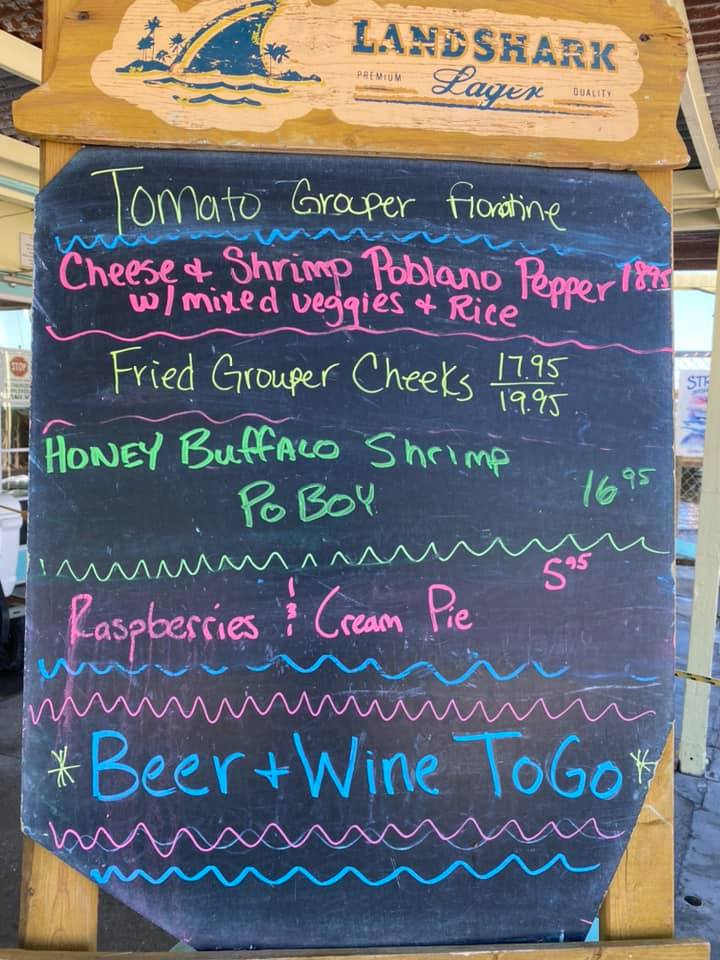 LANDSHARK
PREMIUM Lager QUALITY
Tomato Grouper Florintine
Cheese & Shrimp Poblano Pepper 18.95
w/mixed veggies & Rice
Fried Grouper Cheeks 17.95
19.95
HONEY BuffALO Shrimp
Po BoY 16 95
5 95
Raspberries & Cream Pie
* Beer + Wine ToGo *
STOP